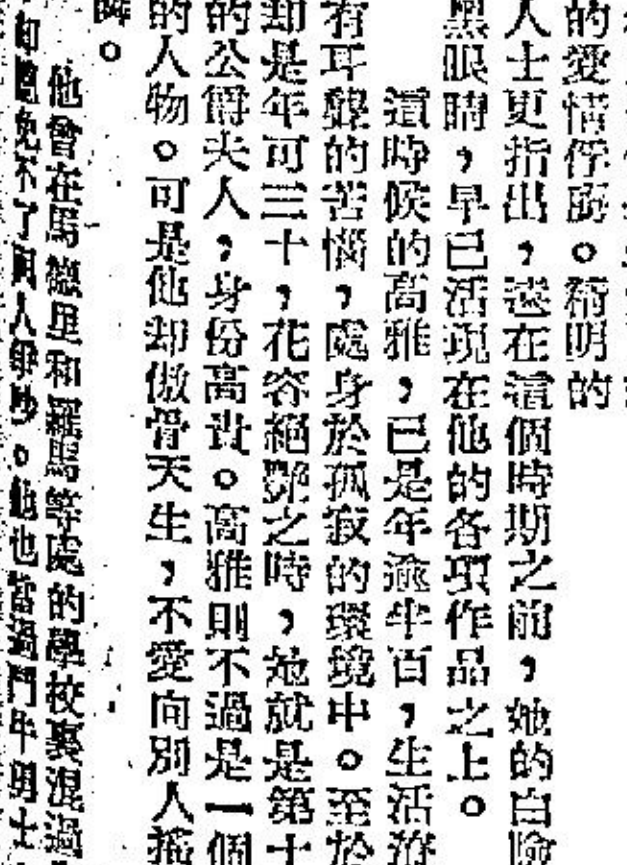 的愛情俘虜。精明的
人士更指出,遠在這個時期之前,她的白臉
黑眼睛,早已活現在他的各項作品之上。
這時候的高雅,已是年逾半百,生活
有耳聾的苦惱,處身於孤寂的環境中。至於
却是年可三十,花容絕艷之時,她就是第十
的公爵夫人,身份高貴。高雅則不過是一個
的人物。可是他却傲骨天生,不愛向別人搖
。
他曾在馬德里和羅馬等處的學校裏混過
免不了與人爭吵。他也當過鬥牛勇士